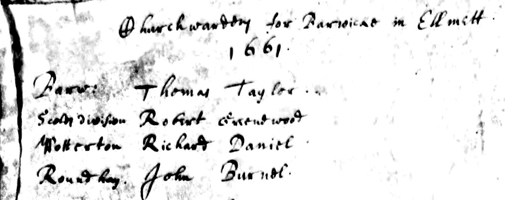 Churchwardens for Barwicke in Ellmett.
1661.
Barw: Thomas Taylor.
Scoles division Robert
Potterton Richard Daniel.
Roundhay. John Burnel.